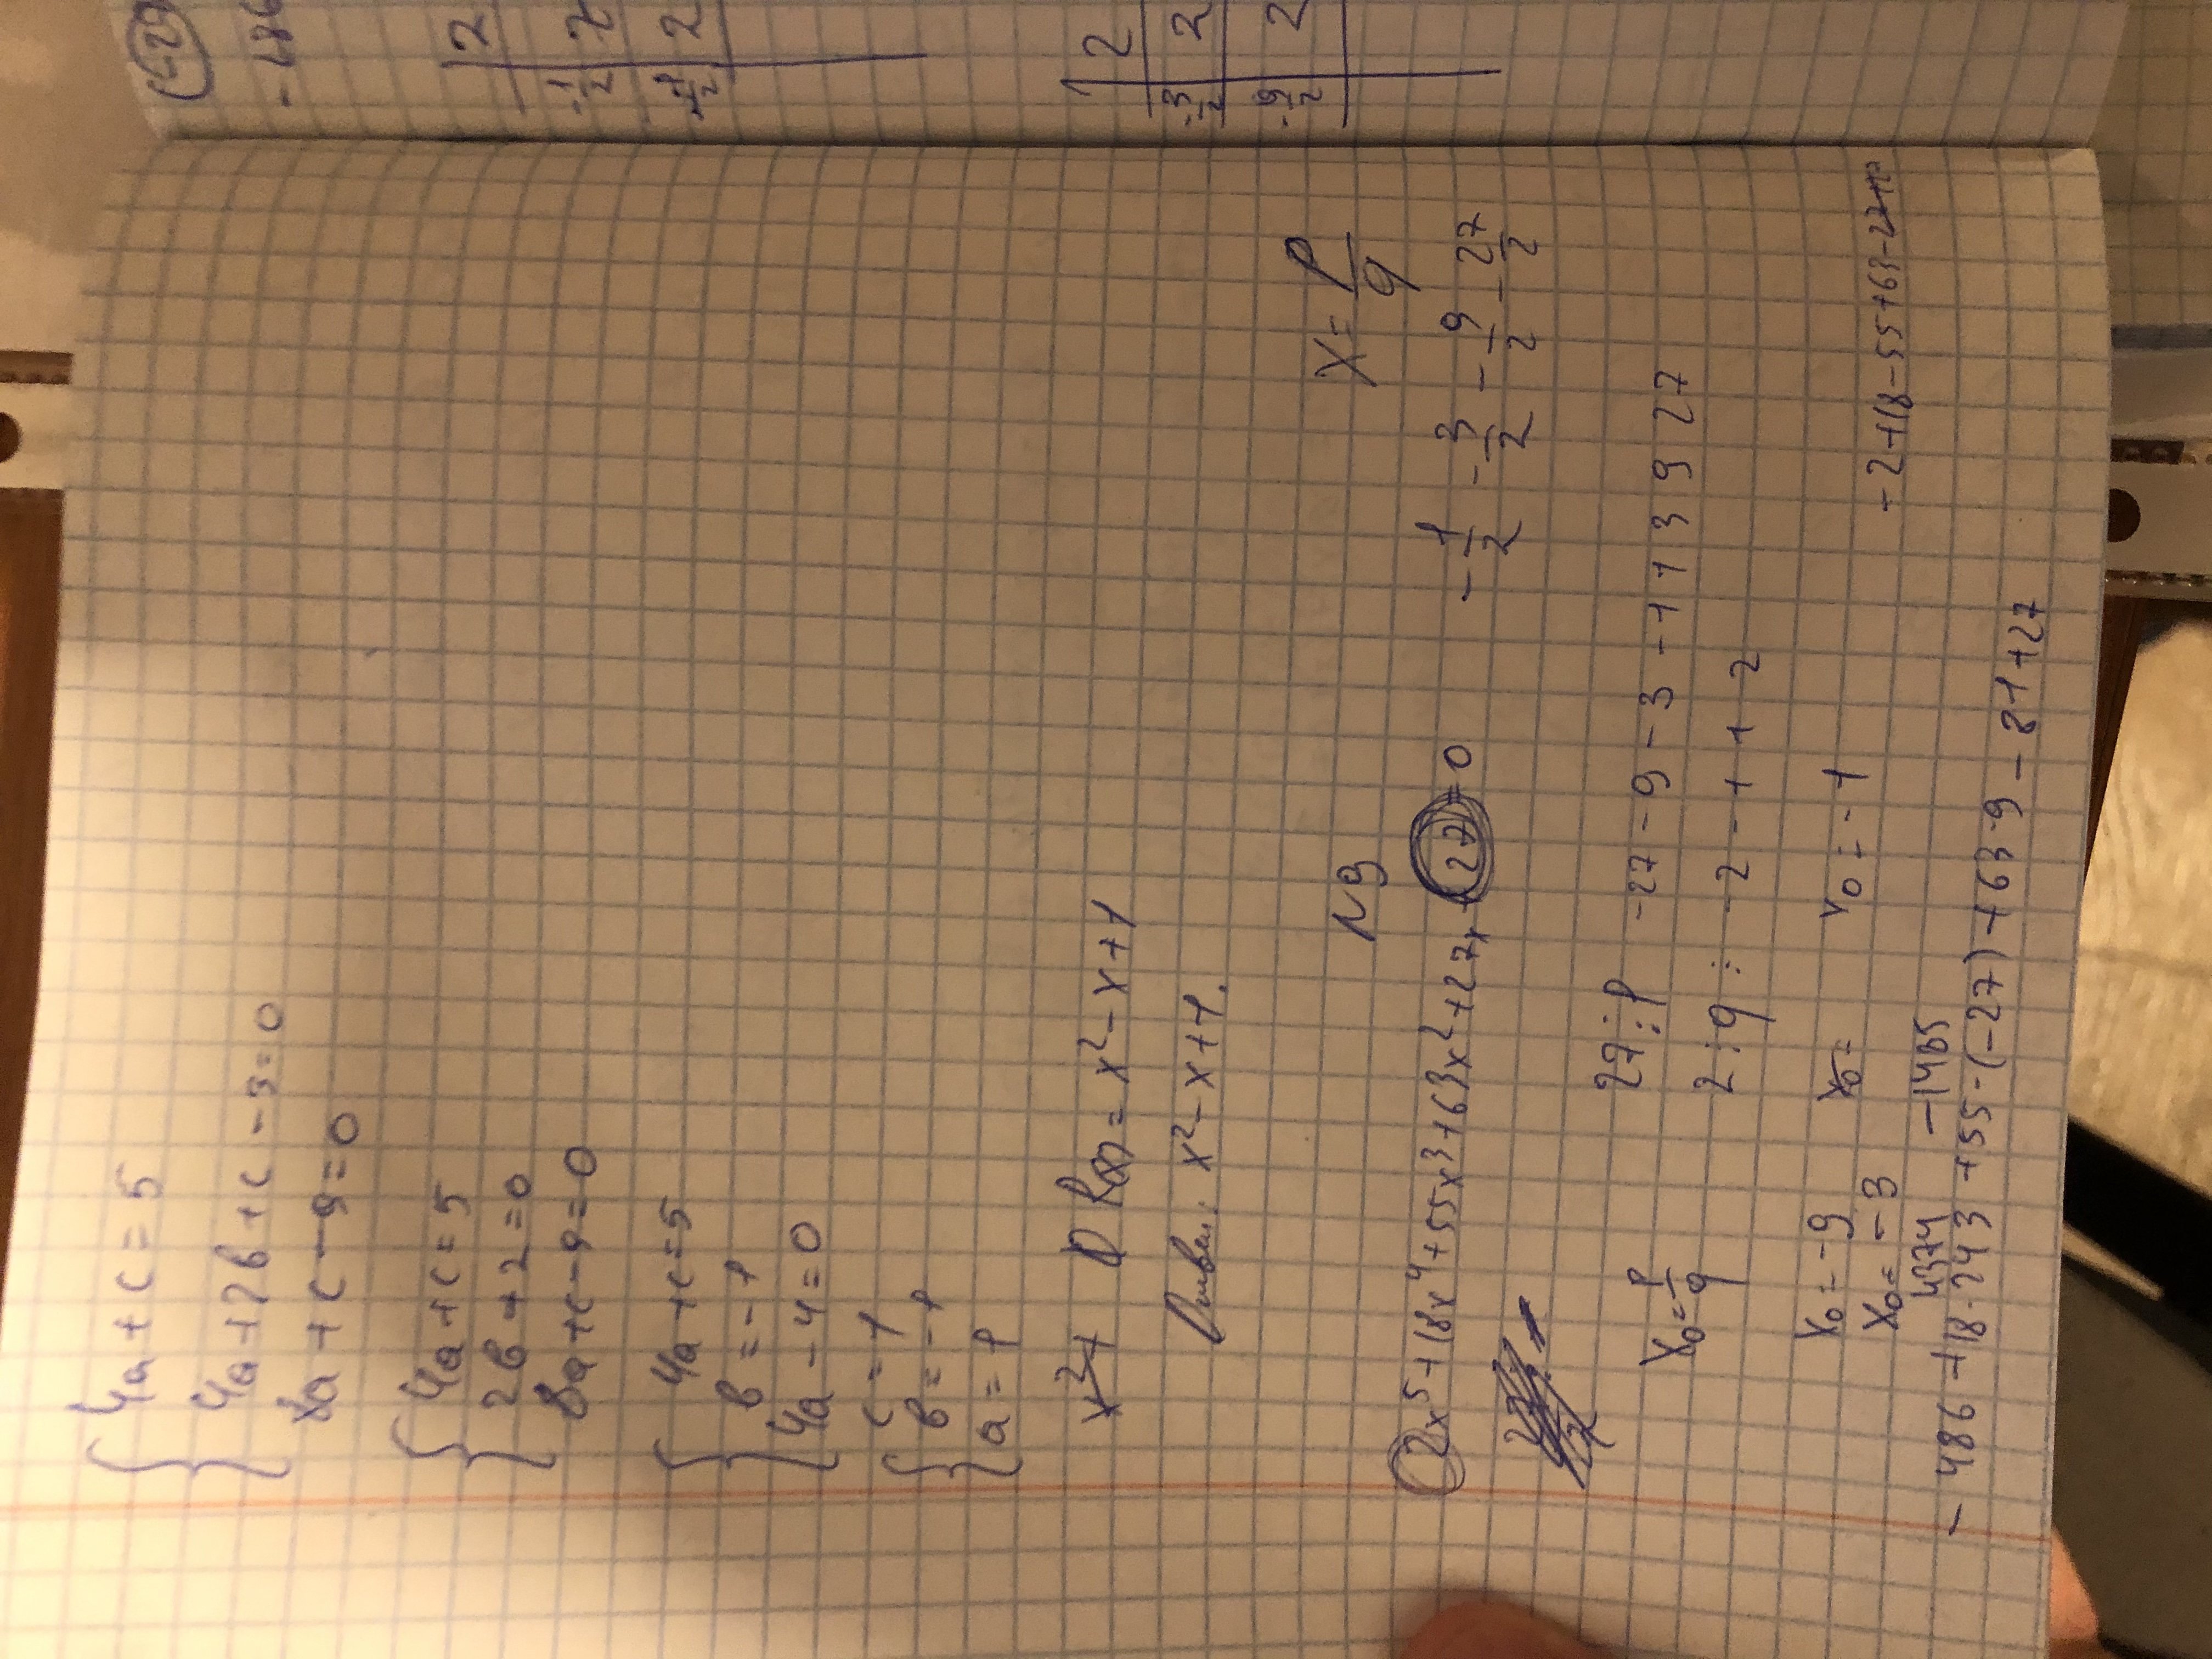 4a + c = 5
4a + 2b + c - 3 = 0
8a + c - 9 = 0
4a + c = 5
2b + 2 = 0
8a + c - 9 = 0
4a + c = 5
b = -1
4a - 4 = 0
c = 1
b = -1
a = 1
R(x) = x² - x + 1
Ответ: x² - x + 1.
N9
x = p/q
2x⁵ + 18x⁴ + 55x³ + 63x² + 27x + 27 = 0
-1/2 -3/2 -9/2 -27/2
x₀ = p/q
27 ⋮ p -27 -9 -3 -1 1 3 9 27
2 ⋮ q : -2 -1 1 2
x₀ = -9
x₀ = -3
x₀ =
x₀ = -1
-2+18-55+63-27+27
4374 -1485
-486 + 18·243 + 55·(-27) + 63·9 - 81 + 27
(-27
-186
2
-1/2 2
2
2
-3/2 2
-9/2 2